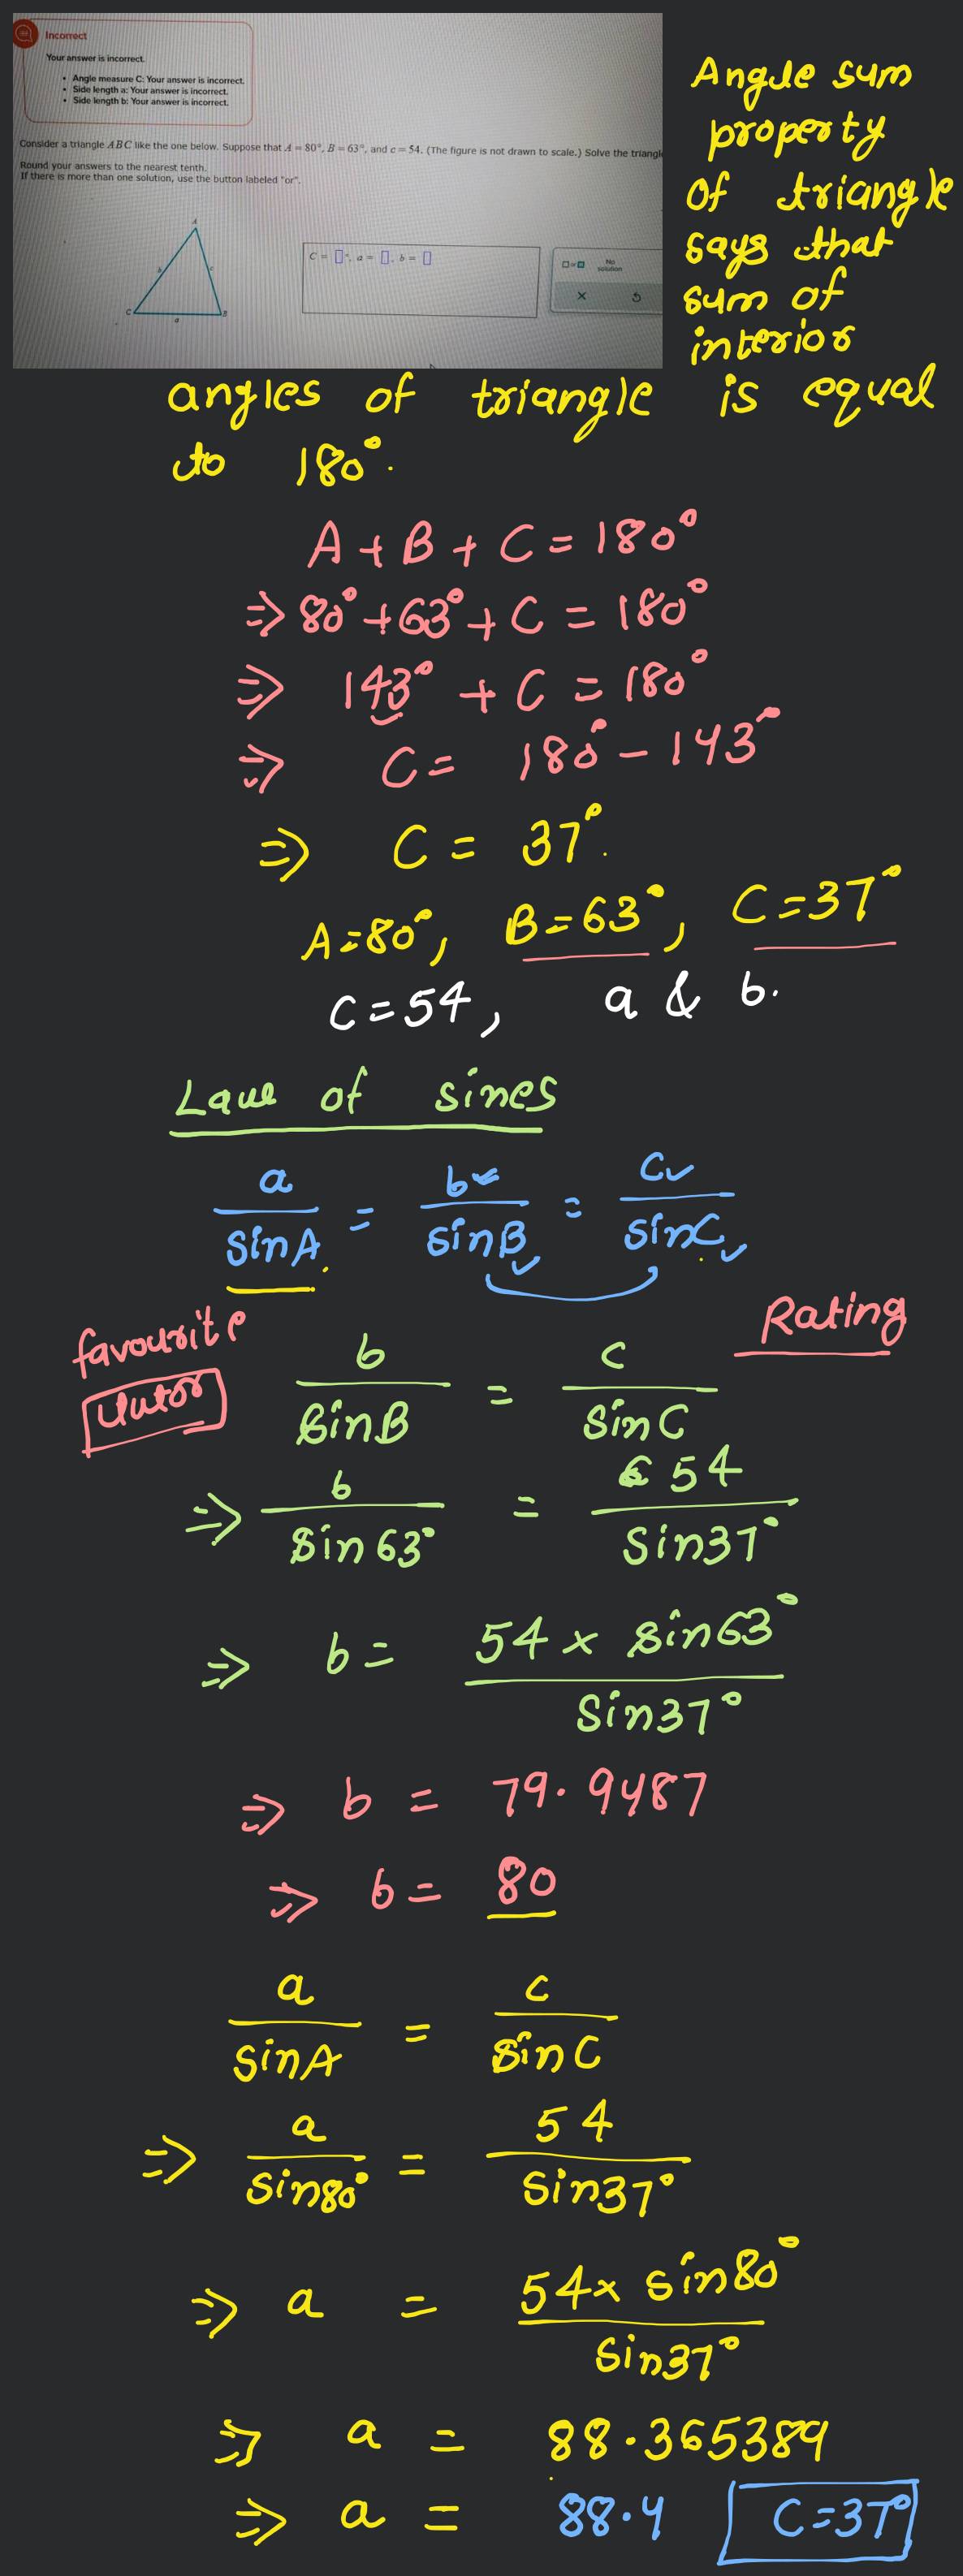 Incorrect
Your answer is incorrect.
• Angle measure C: Your answer is incorrect.
• Side length a: Your answer is incorrect.
• Side length b: Your answer is incorrect.
Consider a triangle ABC like the one below. Suppose that A = 80°, B = 63°, and c = 54. (The figure is not drawn to scale.) Solve the triangle
Round your answers to the nearest tenth.
If there is more than one solution, use the button labeled "or".
A
b c
C B
a
C = □°, a = □, b = □
□ or □ No solution
Angle sum
property
of triangle
says that
sum of
interior
angles of triangle is equal
to 180°.
A + B + C = 180°
⇒ 80° + 63° + C = 180°
⇒ 143° + C = 180°
⇒ C = 180° - 143°
⇒ C = 37°.
A = 80°, B = 63°, C = 37°
c = 54, a & b.
Law of sines
a/sinA = b/sinB = c/sinC
favourite
tutor
Rating
b/sinB = c/sinC
⇒ b/sin63° = 54/sin37°
⇒ b = 54 × sin63°/sin37°
⇒ b = 79.9487
⇒ b = 80
a/sinA = c/sinC
⇒ a/sin80° = 54/sin37°
⇒ a = 54 × sin80°/sin37°
⇒ a = 88.365389
⇒ a = 88.4 C = 37°